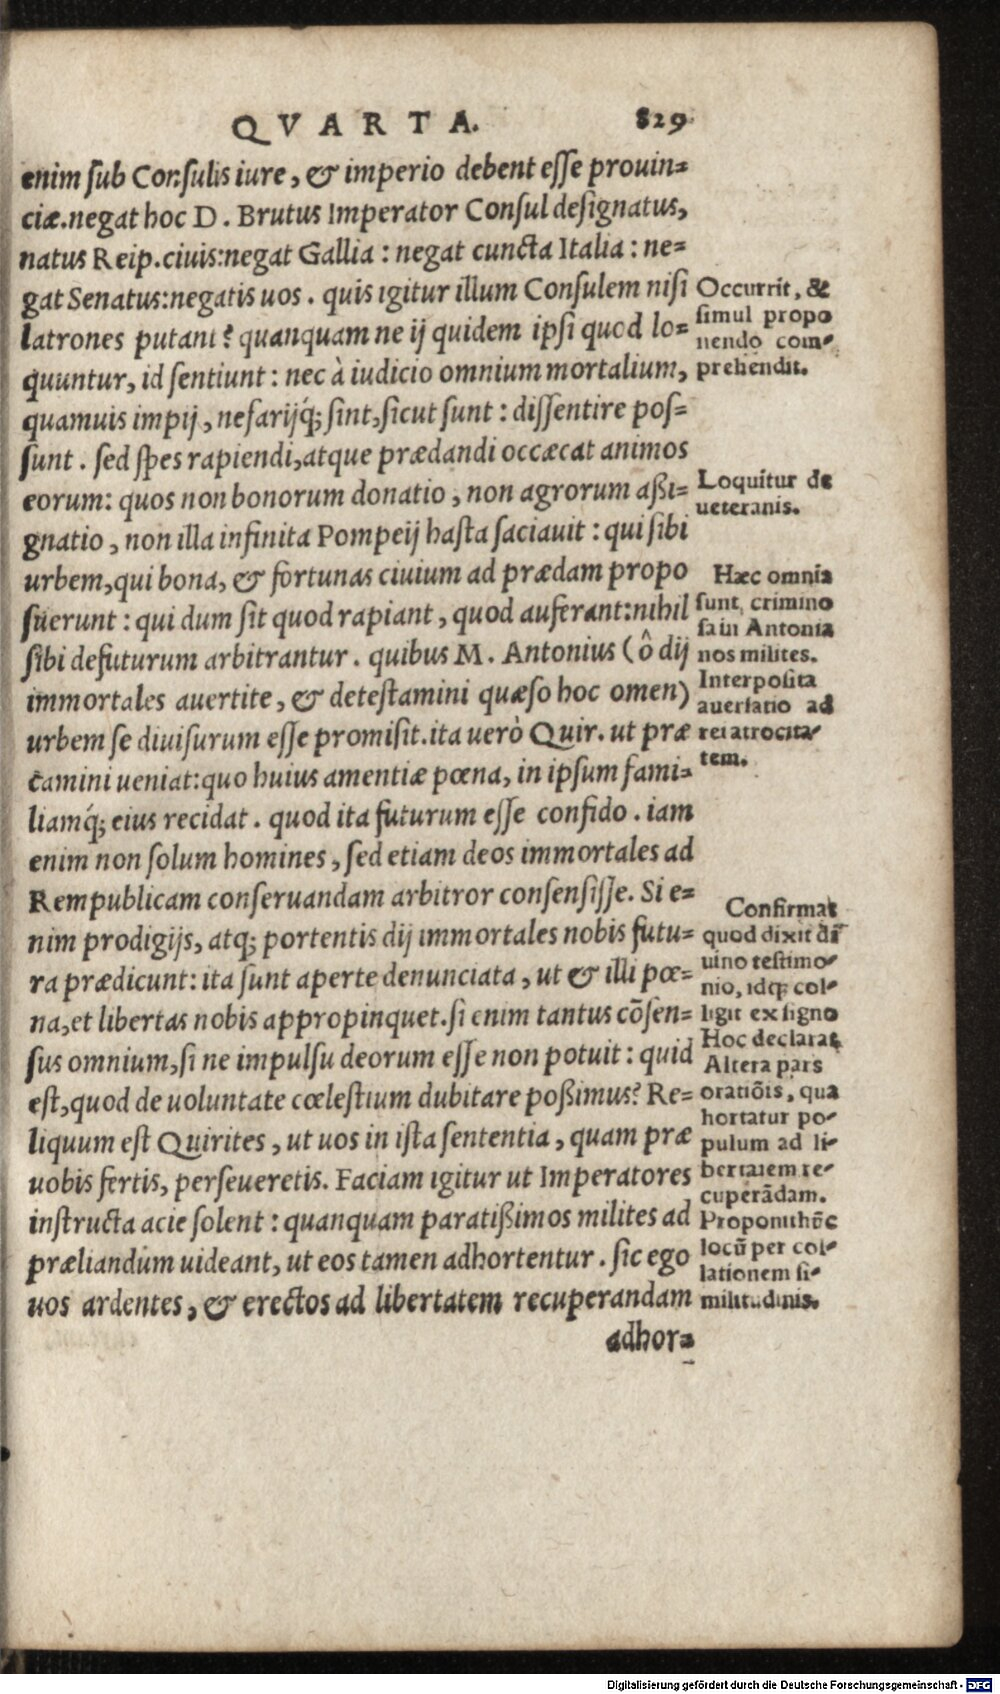 QVARTA. 829
enim sub Consulis iure, & imperio debent esse prouin=
ciæ. negat hoc D. Brutus Imperator Consul designatus,
natus Reip. ciuis: negat Gallia: negat cuncta Italia: ne=
gat Senatus: negatis uos. quis igitur illum Consulem nisi
latrones putant? quanquam ne ij quidem ipsi quod lo=
quuntur, id sentiunt: nec à iudicio omnium mortalium,
quamuis impij, nefarijq́; sint, sicut sunt: dissentire pos=
sunt. sed spes rapiendi, atque prædandi occæcat animos
eorum: quos non bonorum donatio, non agrorum aßi=
gnatio, non illa infinita Pompeij hasta saciauit: qui sibi
urbem, qui bona, & fortunas ciuium ad prædam propo
suerunt: qui dum sit quod rapiant, quod auferant: nihil
sibi defuturum arbitrantur. quibus M. Antonius (ô dij
immortales auertite, & detestamini quæso hoc omen)
urbem se diuisurum esse promisit. ita uerò Quir. ut præ
camini ueniat: quo huius amentiæ pœna, in ipsum fami=
liamq́; eius recidat. quod ita futurum esse confido. iam
enim non solum homines, sed etiam deos immortales ad
Rempublicam conseruandam arbitror consensisse. Si e=
nim prodigijs, atq; portentis dij immortales nobis futu=
ra prædicunt: ita sunt aperte denunciata, ut & illi pœ=
na, et libertas nobis appropinquet. si enim tantus cõsen=
sus omnium, si ne impulsu deorum esse non potuit: quid
est, quod de uoluntate cœlestium dubitare poßimus? Re=
liquum est Quirites, ut uos in ista sententia, quam præ
uobis fertis, perseueretis. Faciam igitur ut Imperatores
instructa acie solent: quanquam paratißimos milites ad
præliandum uideant, ut eos tamen adhortentur. sic ego
uos ardentes, & erectos ad libertatem recuperandam
adhor=
Occurrit, &
simul propo
nendo com-
prehendit.
Loquitur de
ueteranis.
Hæc omnia
sunt crimino
sa in Antonia
nos milites.
Interposita
auersatio ad
rei atrocita-
tem.
Confirmat
quod dixit di
uino testimo-
nio, idq; col-
ligit ex signo
Hoc declarat
Altera pars
oratiõis, qua
hortatur po-
pulum ad li-
bertatem re-
cuperãdam.
Proponit hũc
locũ per col-
lationem si-
militudinis.
Digitalisierung gefördert durch die Deutsche Forschungsgemeinschaft - DFG